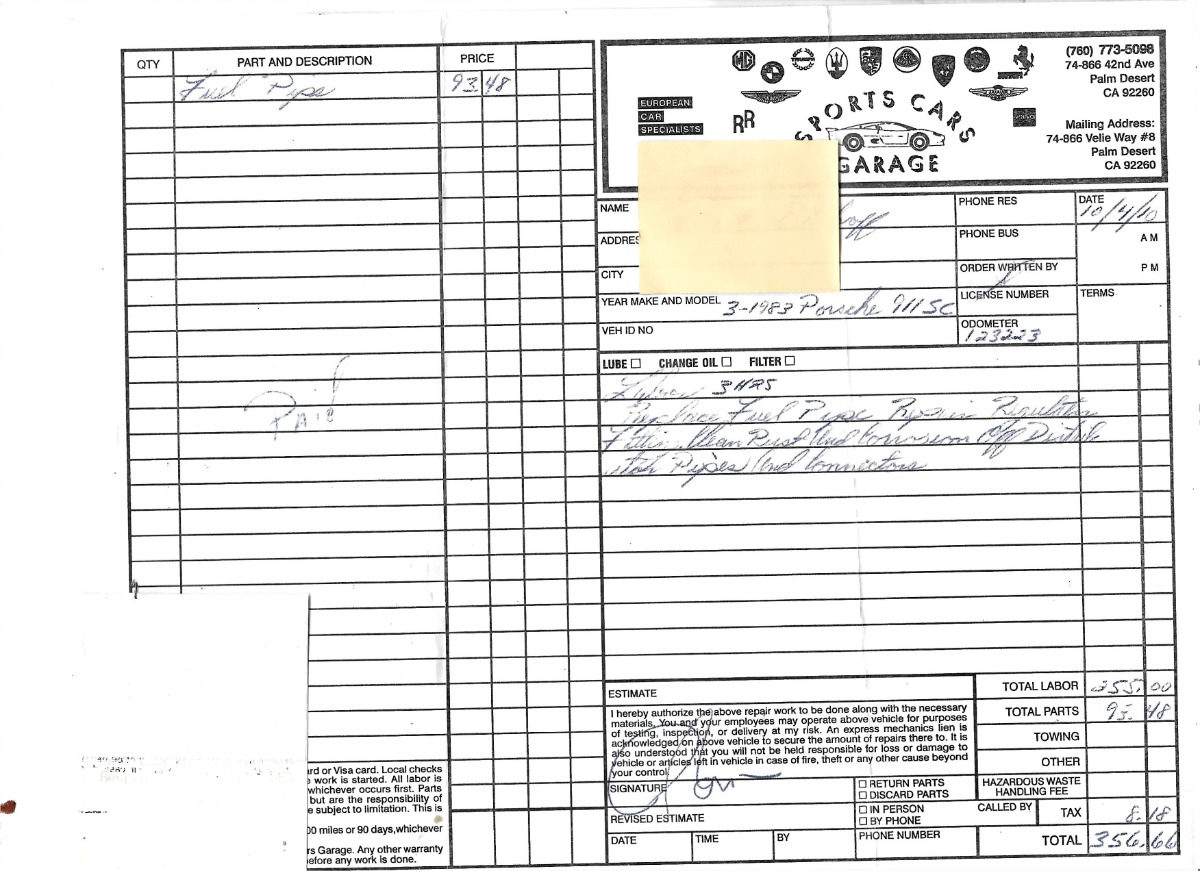 QTY PART AND DESCRIPTION PRICE
Fuel Pipe 93.48
Paid
MG
TRIUMPH
EUROPEAN
CAR
SPECIALISTS
RR
SPORTS CARS
GARAGE
(760) 773-5098
74-866 42nd Ave
Palm Desert
CA 92260
Mailing Address:
74-866 Velie Way #8
Palm Desert
CA 92260
NAME
PHONE RES
DATE
10/4/10
ADDRES
PHONE BUS
AM
CITY
ORDER WRITTEN BY
PM
YEAR MAKE AND MODEL 3-1983 Porsche 911SC
LICENSE NUMBER
TERMS
VEH ID NO
ODOMETER
123223
LUBE CHANGE OIL FILTER
3 HRS
Replace Fuel Pipe Repair Regulator
Clean Rust And Corrosion Off
Pipes And Connectors
ESTIMATE
I hereby authorize the above repair work to be done along with the necessary
materials. You and your employees may operate above vehicle for purposes
of testing, inspection, or delivery at my risk. An express mechanics lien is
acknowledged on above vehicle to secure the amount of repairs there to. It is
also understood that you will not be held responsible for loss or damage to
vehicle or articles left in vehicle in case of fire, theft or any other cause beyond
your control.
SIGNATURE
RETURN PARTS
DISCARD PARTS
REVISED ESTIMATE
IN PERSON
BY PHONE
CALLED BY
DATE TIME BY PHONE NUMBER
TOTAL LABOR 255.00
TOTAL PARTS 93.48
TOWING
OTHER
HAZARDOUS WASTE
HANDLING FEE
TAX 8.18
TOTAL 356.66
rd or Visa card. Local checks
work is started. All labor is
whichever occurs first. Parts
but are the responsibility of
e subject to limitation. This is
00 miles or 90 days, whichever
rs Garage. Any other warranty
efore any work is done.